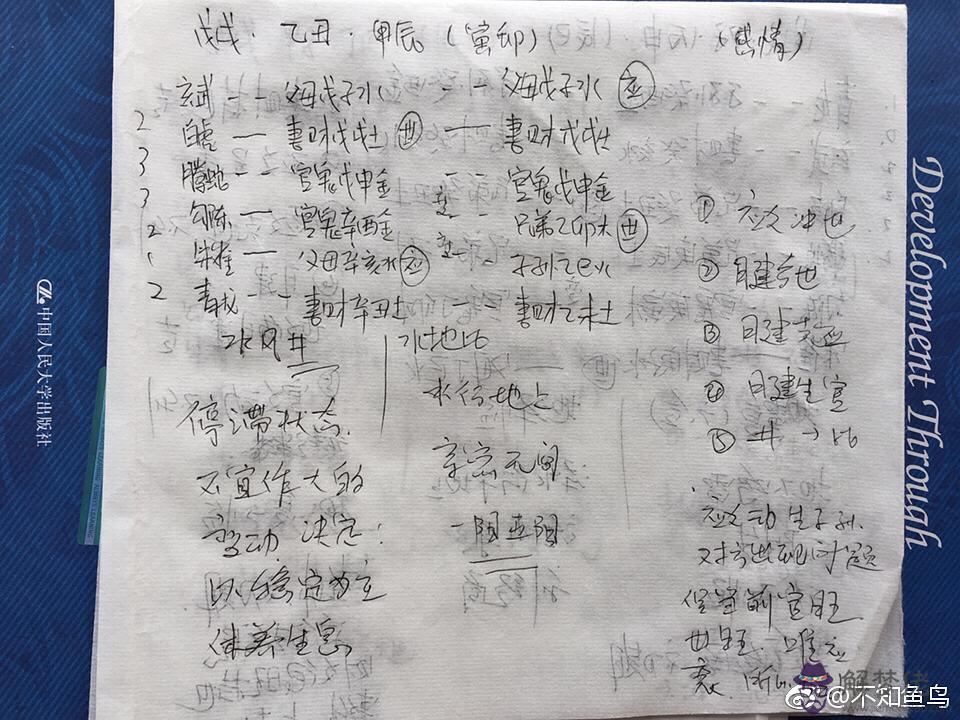 戊戌·乙丑·甲辰（寅卯） （感情）
玄武 -- 父母戊子水 -- 父母戊子水 应
2 白虎 — 妻财戊戌土 世 — 妻财戊戌土
3 腾蛇 -- 官鬼戊申金 -- 官鬼戊申金
3 勾陈 — 官鬼辛酉金 -- 兄弟乙卯木 世
2 朱雀 — 父母辛亥水 应 -- 子孙乙巳火
2 青龙 -- 妻财辛丑土 妻财乙未土
水风井
水地比
停滞状态.
不宜作大的
变动 决定:
以稳定为主
休养生息
水行地上
亲密无间
① 应爻冲世
② 日建
③ 日建 应
④ 日建生官
⑤ 井→比
应爻动生子孙.
对方出现问题
官旺
世旺. 唯应
衰.
中国人民大学出版社
Development Through
解梦佬
@不知鱼鸟